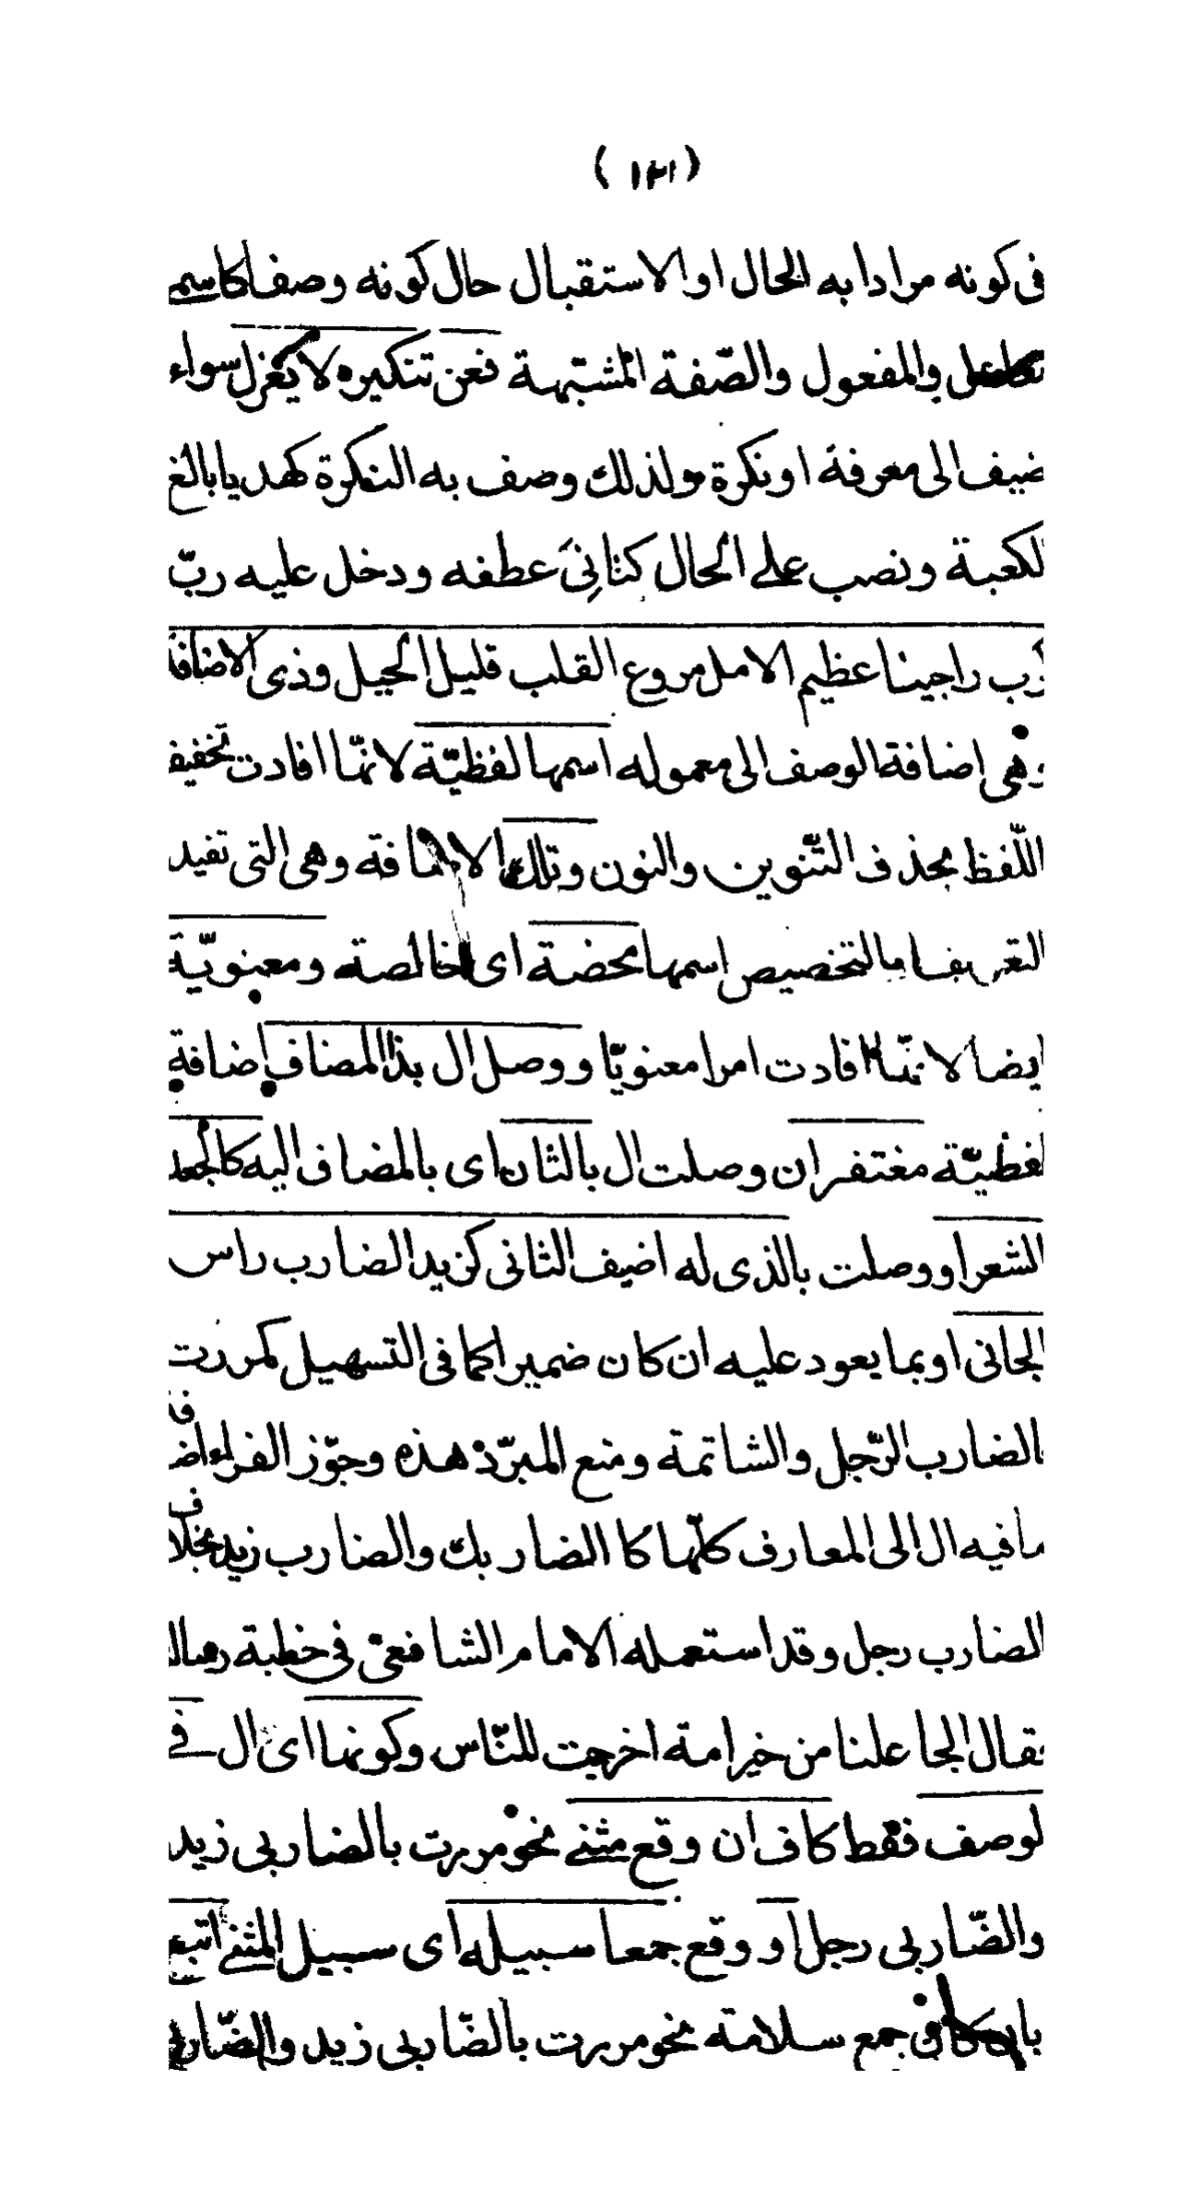 (١٢١)
فى كونه مرادا به الحال او الاستقبال حال كونه وصفا كاسم
والمفعول والصّفة المشبّهة فعن تنكيره لا يعزل سواء
ضيف الى معرفة او نكرة ولذلك وصف به النكرة كهديا بالغ
لكعبة ونصب على الحال كثانِىَ عطفه ودخل عليه ربّ
رُب راجينا عظيم الامل مروع القلب قليل الحيل وذى الاضافة
وهى اضافة الوصف الى معموله اسمها لفظيّة لانّها افادت تخفيف
اللّفظ بحذف التّنوين والنون وتلك الاضافة وهى التى تفيد
التعريف او التخصيص اسمها محضة اى خالصة ومعنويّة
ايضا لانّها افادت امرا معنويّا ووصل ال بذا المضاف اضافة
لفظيّة مغتفر ان وصلت ال بالثان اى بالمضاف اليه كالجعد
الشعر او وصلت بالذى له اضيف الثانى كزيد الضارب راس
الجانى او بما يعود عليه ان كان ضميرا كما فى التسهيل كمررت
بالضارب الرّجل والشاتمة ومنع المبرّد هذه وجوّز الفراء اضافة
ما فيه ال الى المعارف كلّها كالضاربك والضارب زيد بخلاف
الضارب رجل وقد استعمله الامام الشافعىّ فى خطبة رسالته
فقال الجاعلنا من خير امة اخرجت للنّاس وكونها اى ال فى
لوصف فقط كاف ان وقع مثنى نحو مررت بالضاربى زيد
والضّاربى رجل او وقع جمعا سبيله اى سبيل المثنى اتبع
فى جمع سلامته نحو مررت بالضّاربى زيد والضّاربى